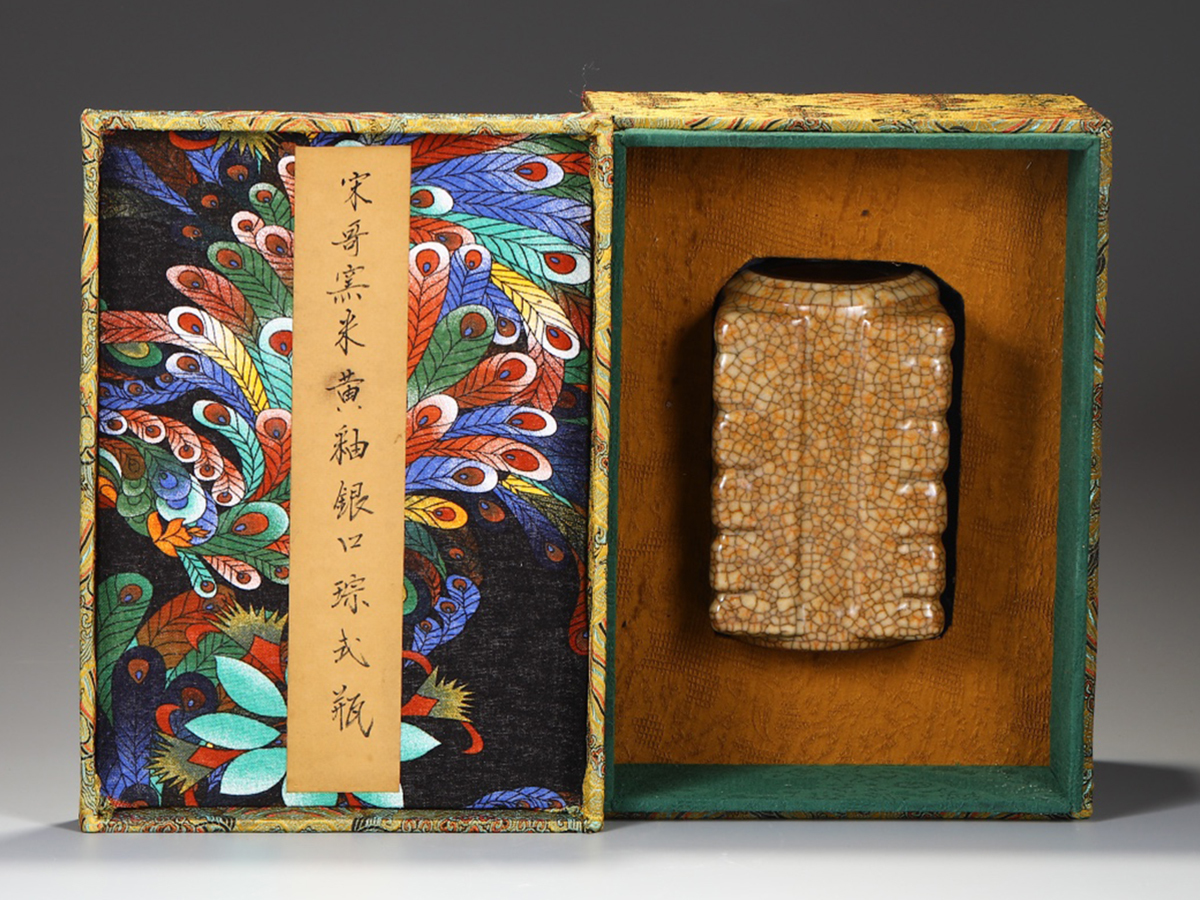 宋哥窯米黃釉銀口琮式瓶